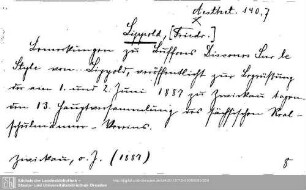 Aesthet. 190,7
Lippold, [Friedr.]
Bemerkungen zu Buffons Discours sur le
Style von Lippold, veröffentlicht zur Begrüssung
der am 1. und 2. Juni 1889 zu Zwickau tagen-
den 13. Hauptversammlung des Sächsischen Real-
schulmänner-Vereins.
Zwickau, o. J. (1889)
8